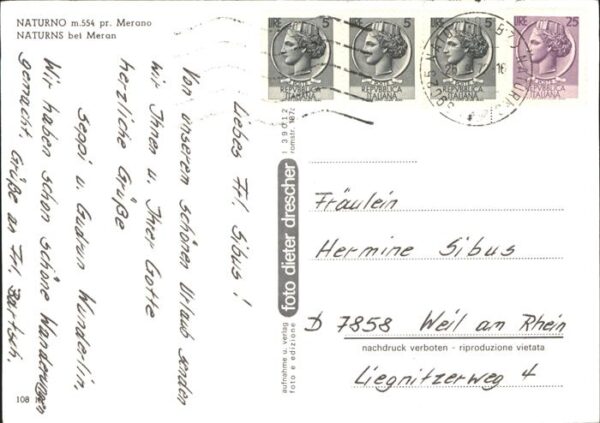 NATURNO m.554 pr. Merano
NATURNS bei Meran
LIRE 5
LIRE 5
LIRE 5
LIRE 25
REPVBBLICA
ITALIANA
REPVBBLICA
ITALIANA
REPVBBLICA
ITALIANA
REPVBBLICA
ITALIANA
Liebes Frl. Sibus!
Von unserem schönen Urlaub senden
wir Ihnen u. Ihrer Gotte
herzliche Grüße
Seppi u. Gudrun Wunderlin,
Wir haben schon schöne Wanderungen
gemacht. Grüße an Frl. Bartsch,
foto dieter drescher
aufnahme u. verlag
foto e edizione
Fräulein
Hermine Sibus
D 7858 Weil am Rhein
nachdruck verboten - riproduzione vietata
Liegnitzerweg 4
108